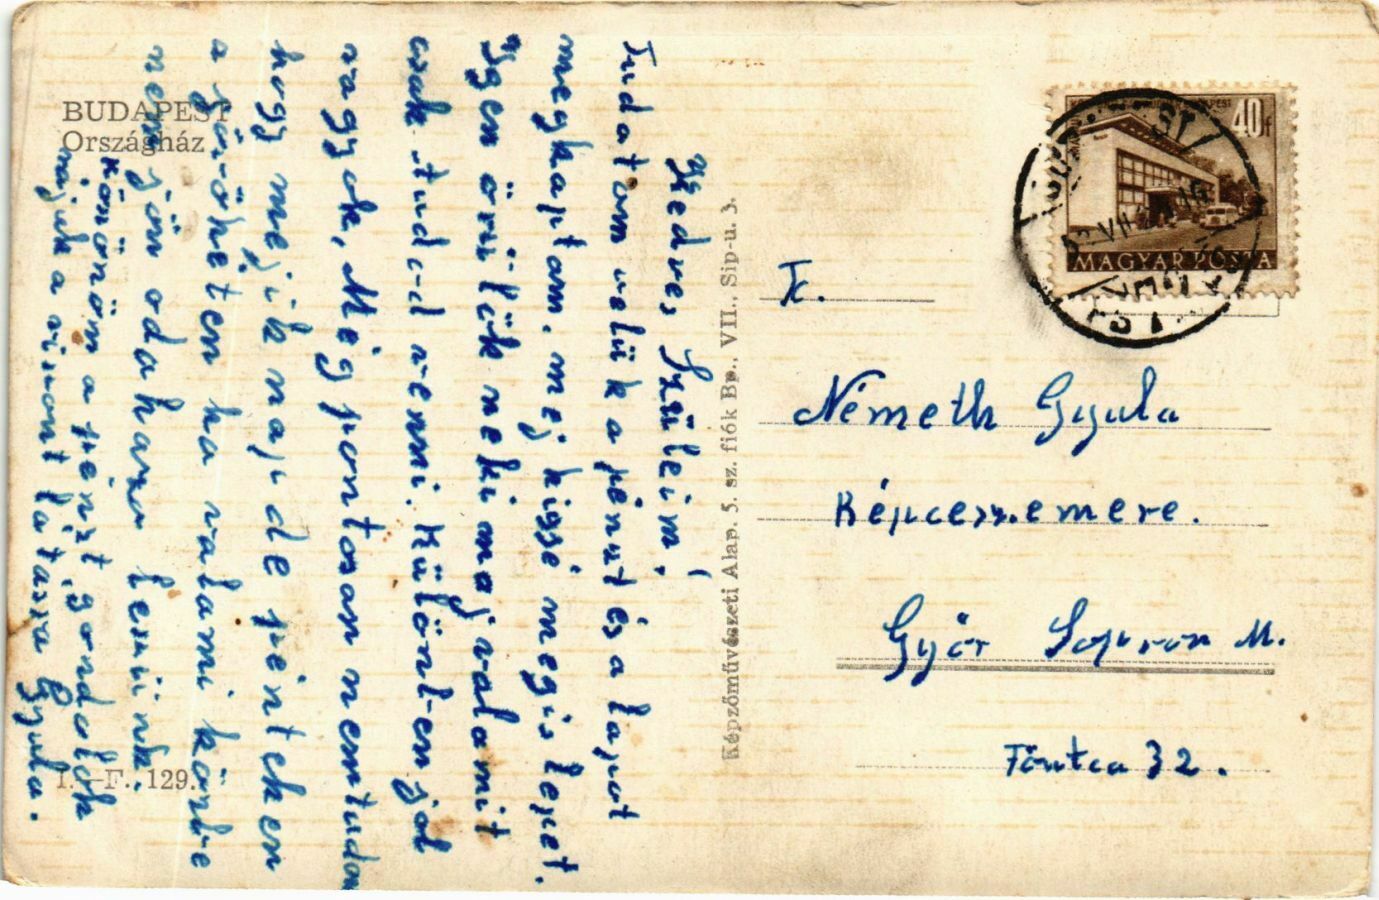 BUDAPEST
Országház
Kedves Szüleim!
Tudatom velük a pénzt és a lapot
megkaptam. mej kissé megis lepet.
Igen örülök neki maj valamit
csak tudod venni. Külömben jól
vagyok, Még pontosan nem tudom
hogy mejik nap de pénteken
a győrőketem ha valami közbe
nem jön odahaza leszünk.
Könönöm a pénzt gondolok
rájuk a viszont látásra Gyula.
I.-F., 129.
Képzőművészeti Alap. 5. sz. fiók Bp., VII., Sip-u. 3.
40f
MAGYAR POSTA
Tc.
Németh Gyula
Répceszemere.
Győr Sopron M.
Főutca 32.